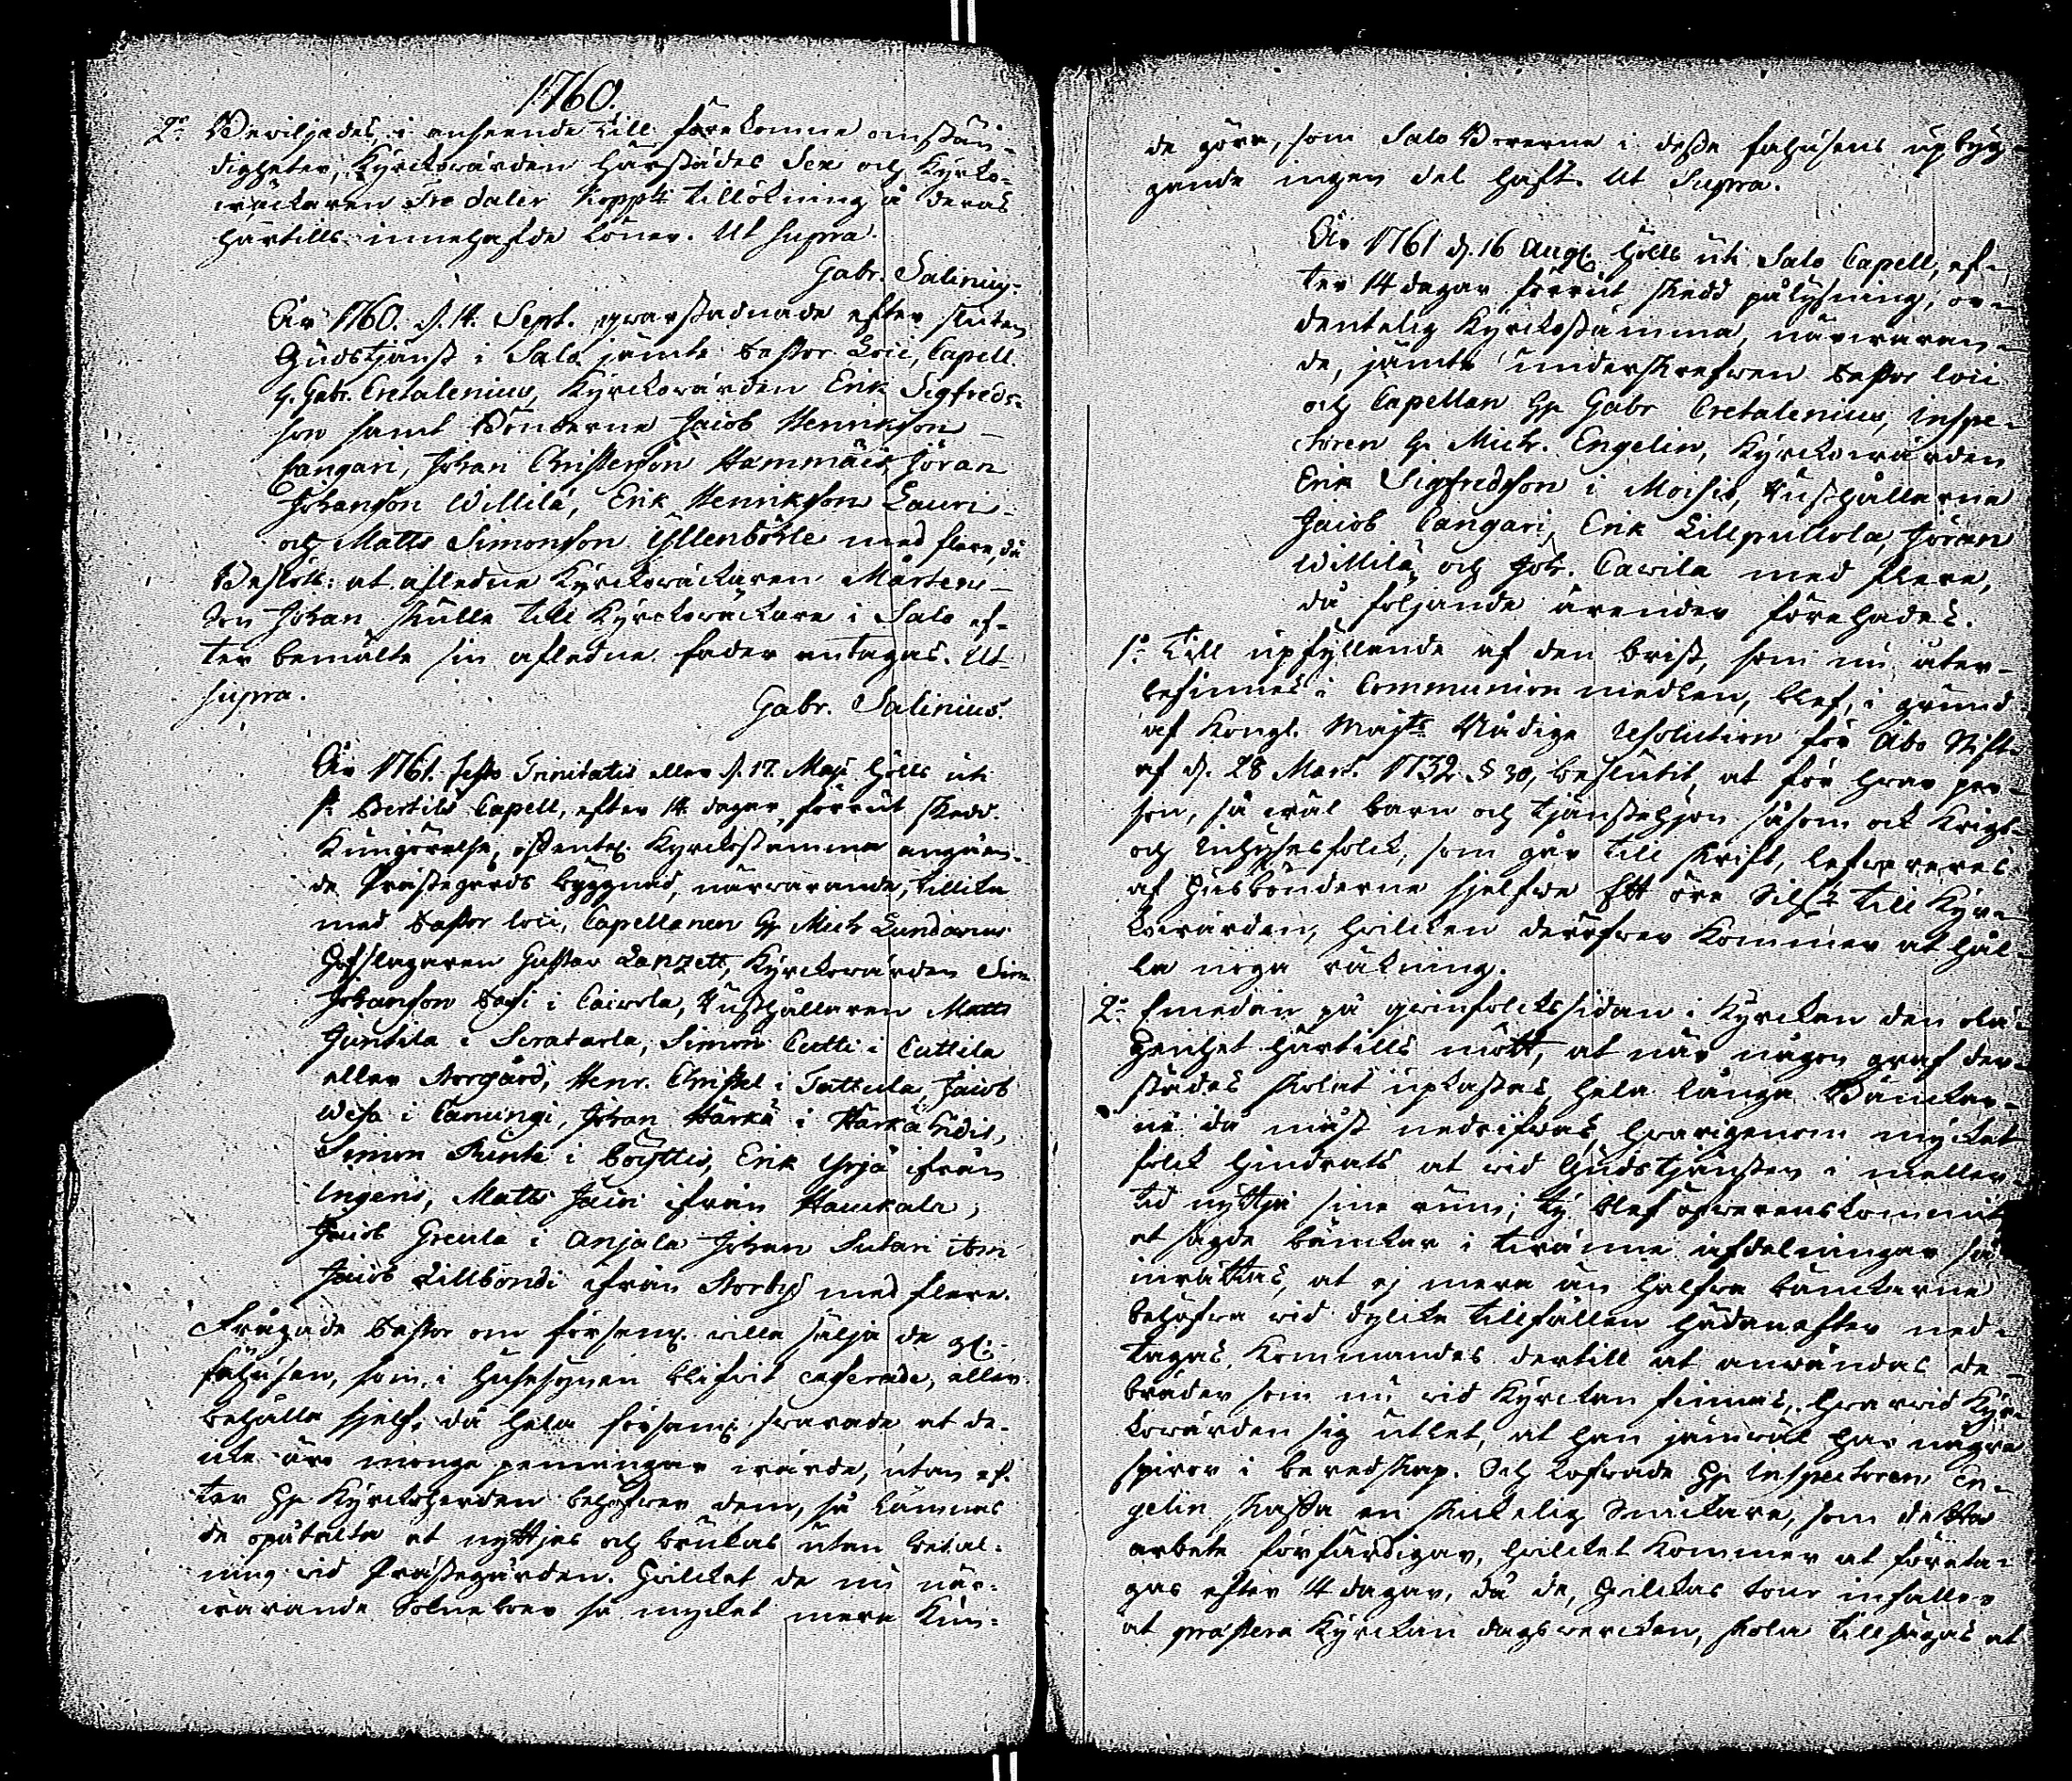 1760.
2:o Beviljades, i anseende till förekomne omstän-
digheter, Kyrckowärden härstädes Sex och Kyrko-
wäckaren Tre daler Kopp:t tillökning å deras
härtills innehafde löner. Ut supra.
Gabr. Salinius.
År 1760. d. 14. Sept. qwarstadnade efter sluten
Gudstjänst i Salo jämte Pastor Loci, Capell.
H. Gabr. Cretalenius, Kyrckowärden Erik Sigfreds-
son samt Bönderne Jacob Henrikson
Cangari, Johan Christerson Hammais, Jöran
Johanson Willilä, Erik Henrikson Lauri
och Matts Simonson Yllenböhle med flere, då
Beslöts: at afledne Kyrckowäckaren Mårtens
Son Johan skulle till Kyrckowäckare i Salo ef-
ter bemälte sin afledne fader antagas. Ut
supra.
Gabr. Salinius.
År 1761. Festo Trinitatis eller d. 17. Maji hölls uti
S:t Bertils Capell, efter 14 dagar förrut skedd
Kungörelse, Kyrckostämma angåen-
de Prästegårds byggnad, närwarande, tillika
med Pastor loci, Capellanen H:r Mich. Lundanus
Hofslagaren Gustav Lanzett, Kyrckowärden Sim.
Johanson Pasi i Caiwola, Rusthållaren Matts
Juntila i , Simon Cutti i Cuttila
eller Norgård, Henr. Christel i Tattula, Jacob
Wesa i Canungi, Johan Härkä i Härkähidis,
Simon Rinti i Böyttis, Erik Yrjä ifrån
Ingeris, Matts Jussi ifrån Haukala,
Jacob Greula i Anjala Johan Sutari item
Jacob Lillbondi ifrån Norby med flere.
Frågade Pastor om församl. wille sälja de gl.
fähusen, som i husesynen blifwit casserade, eller
behålla sjelf; då hela församl. swarade at de
icke äro monga penningar wärde, utan ef-
ter H:r Kyrckoherden behöfwer dem, så lämnas
de opåtalta at nyttjas och brukas utan betal-
ning wid Prästegården. Hwilcket de nu när-
warande Sockneboer så mycket mera kun-
de göra, som Salo Boerne i desse fähusens upbyg-
gande ingen del haft. Ut Supra.
År 1761 d. 16 Aug. hölls uti Salo Capell, ef-
ter 14 dagar förrut skedd pålysning, or-
dentelig Kyrckostämma, närwaran-
de, jämte underskrefwen Pastor loci
och Capellan H:r Gabr. Cretalenius, Inspe-
ctoren H:r Mich. Engelin, Kyrckowärden
Erik Sigfredson i Moisis, Rusthållarne
Jacob Cangari, Erik Lillpullola, Jöran
Willilä och Joh. Cawila med flere,
då följande ärender förehades.
1:o Till upfyllande af den brist, som nu åter-
befinnes i Communion medlen, blef, i grund
af Kongl. Maj:ts Nådige Resolution för Åbo Stift
af d. 28 Mart. 1732. § 30, beslutit, at för hwar per-
son, så wäl barn och tjänstehjon såsom ock Krigs-
och inhysesfolck, som går till skrift, lefwereres
af Husbönderne sjelfwe Ett öre Silf:t till Kyrc-
kowärden, hwilcken deröfwer kommer at hål-
la noga räkning.
2:o Emedan på qwinfolckssidan i Kyrckan den olä-
genhet härtills mött, at när någon graf der-
städes skolat upkastas, hela långa Bänckar-
ne då måst nedrifwas, hwarigenom mycket
folck hindrats at wid Gudstjänsten i mellen
tid nyttja sine rum; ty blef öfwerenskommit
at sagde bänckar i twänne afdelningar så
inrättas, at ej mera än halfwa bänckarne
behöfwa wid dylike tillfällen hädanefter ned-
tagas, Kommandes dertill at anwändas de
bräder som nu wid Kyrckan finnas, hwarwid Kyrc-
kowärden sig utlet, at han jämwäl har några
spiror i beredskap. Och lofwade H:r Inspectoren En-
gelin skaffa en skickelig Snickare, som detta
arbete förfärdigar, hwilcket kommer at företa-
gas efter 14 dagar, då de, hwilckas tour infaller
at præstera Kyrckan dagswercken, skola tillsägas at